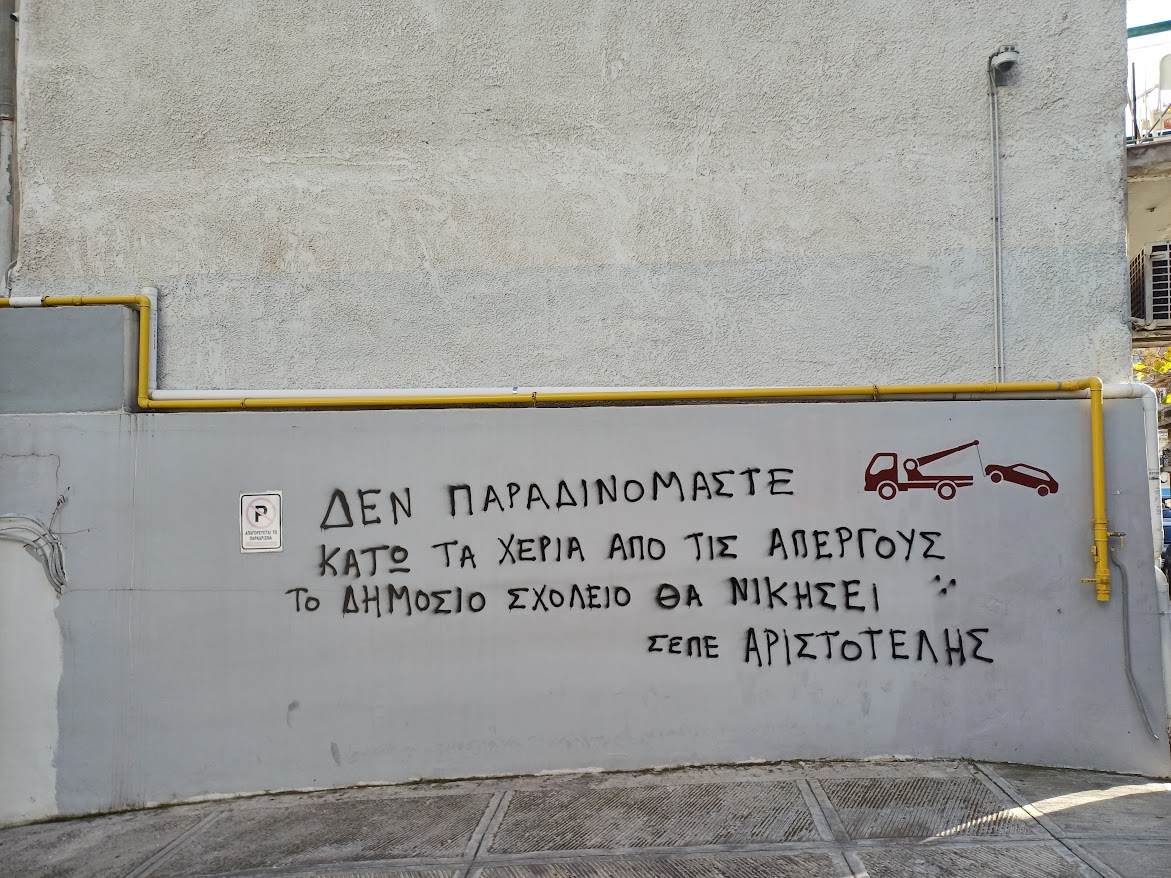 ΔΕΝ ΠΑΡΑΔΙΝΟΜΑΣΤΕ
ΚΑΤΩ ΤΑ ΧΕΡΙΑ ΑΠΟ ΤΙΣ ΑΠΕΡΓΟΥΣ
ΤΟ ΔΗΜΟΣΙΟ ΣΧΟΛΕΙΟ ΘΑ ΝΙΚΗΣΕΙ
ΣΕΠΕ ΑΡΙΣΤΟΤΕΛΗΣ
P
ΑΠΑΓΟΡΕΥΕΤΑΙ ΤΟ
ΠΑΡΚΑΡΙΣΜΑ